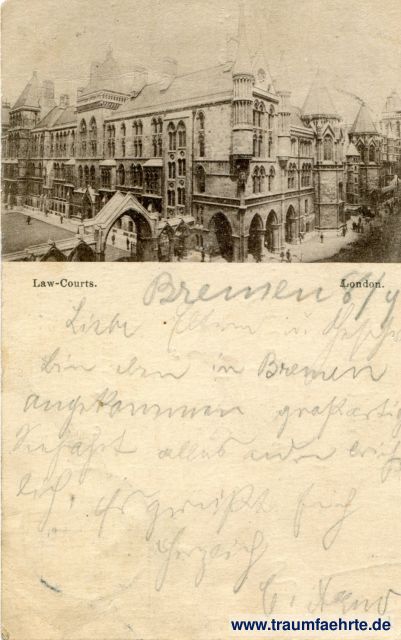 Law-Courts. London.
Bremen
Liebe Eltern u. Geschw
bin eben in Bremen
angekommen großartig
Seefahrt alles
lich. Es grüßt Euch
herzlich
www.traumfaehrte.de